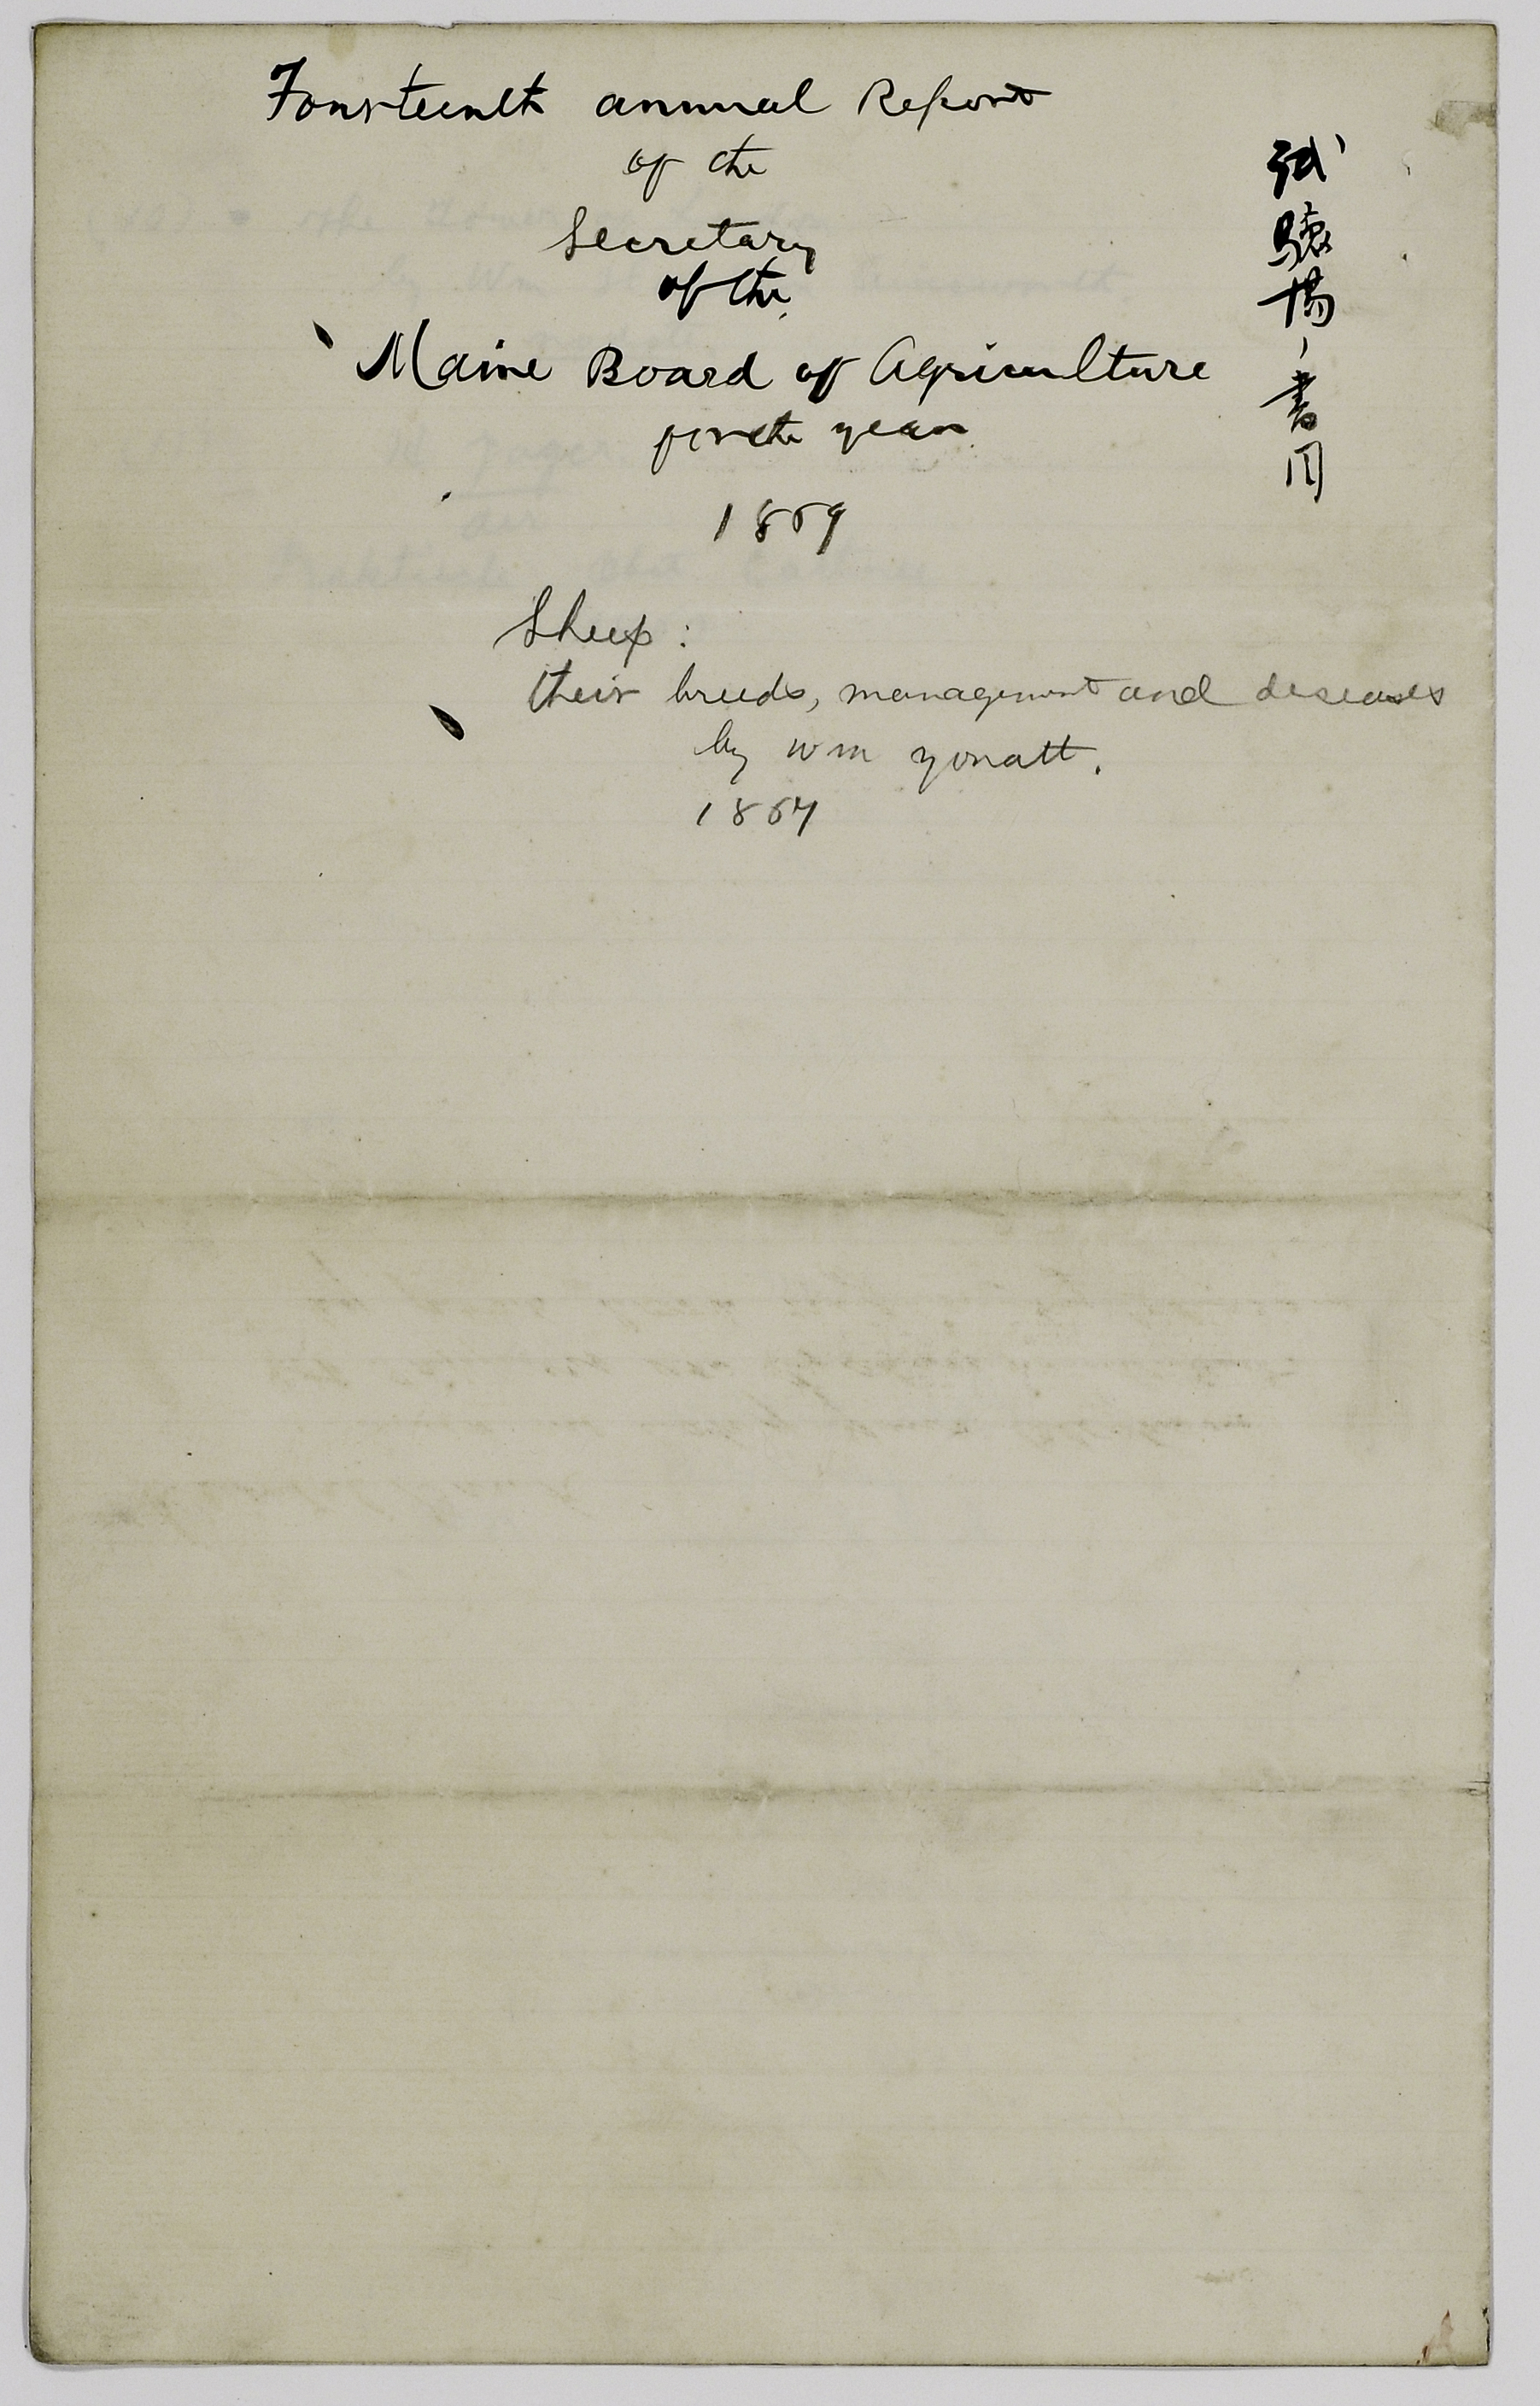 Fourteenth annual Report
of the
Secretary
of the
Maine Board of Agriculture
for the year
1869
Sheep:
their breeds, management and deseases
by Wm Youatt.
1867
試驗場ノ書目